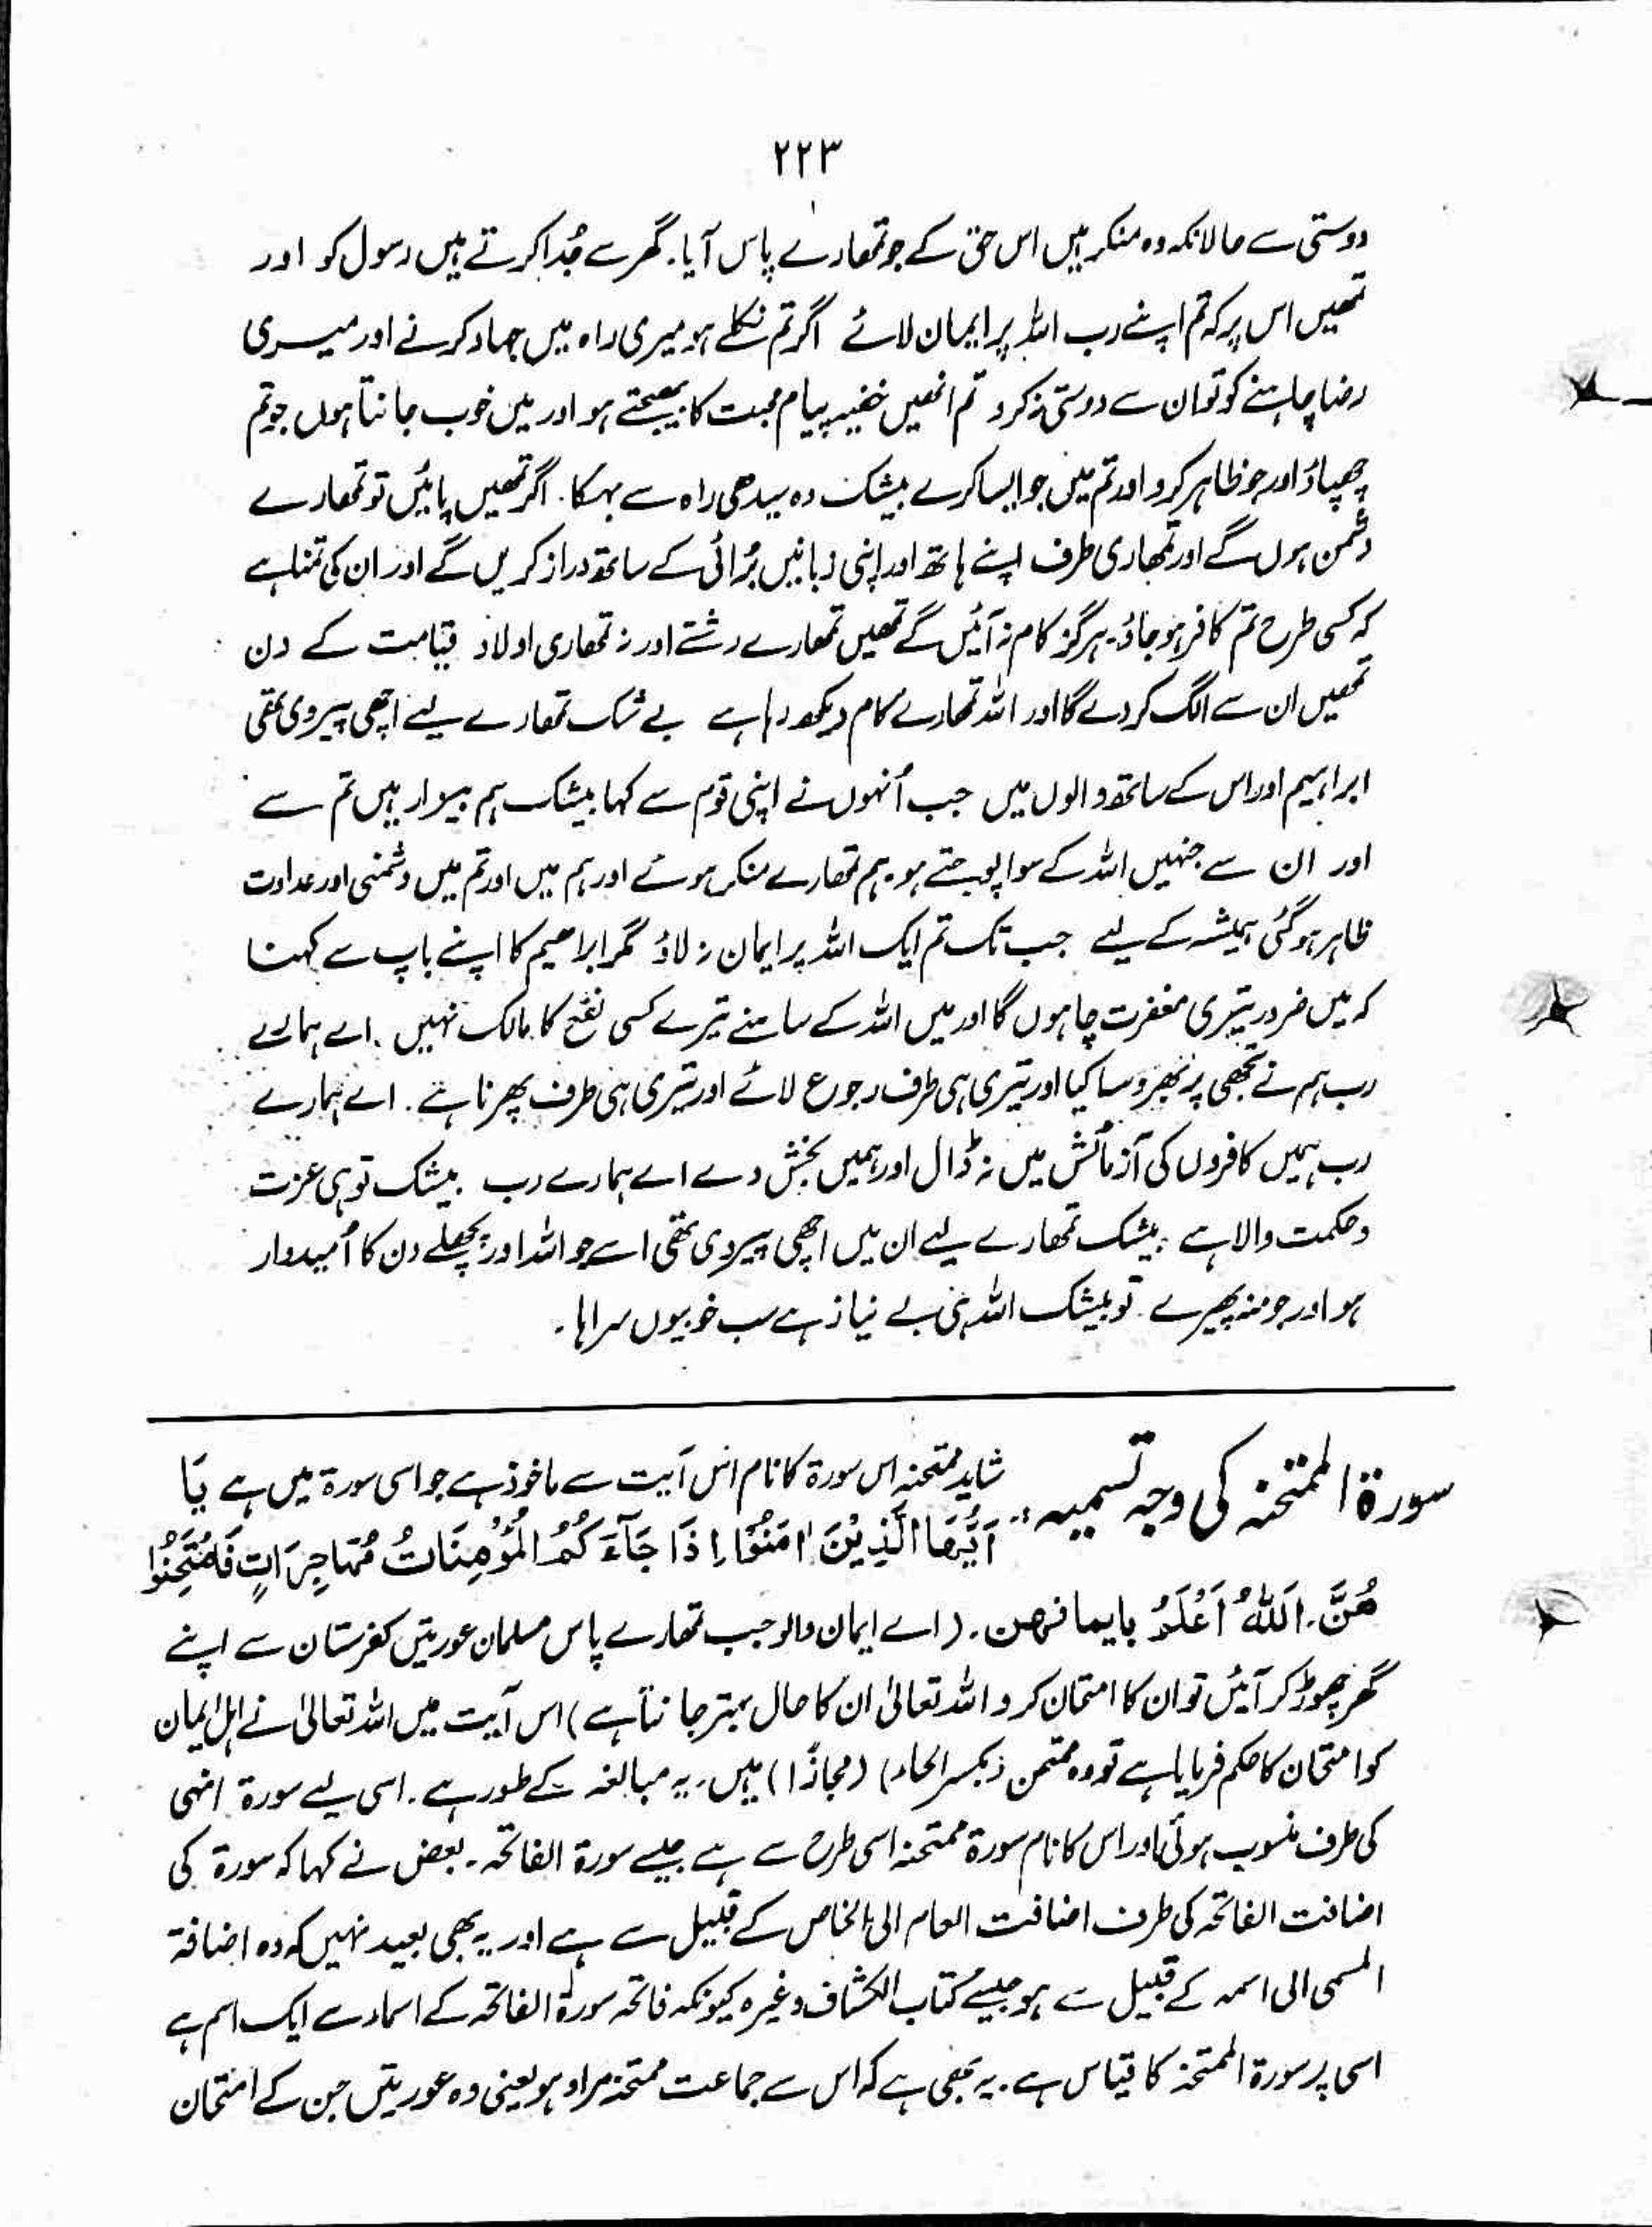 ۲۲۳
دوستی سے حالانکہ وہ منکر ہیں اس حق کے جو تمھارے پاس آیا۔ گھر سے جُدا کرتے ہیں رسول کو اور
تمھیں اس پر کہ تم اپنے رب اللہ پر ایمان لائے اگر تم نکلے ہو میری راہ میں جہاد کرنے اور میری
رضا چاہنے کو تو ان سے دوستی نہ کرو تم انھیں خفیہ پیام محبت کا بھیجتے ہو اور میں خوب جانتا ہوں جو تم
چھپاؤ اور جو ظاہر کرو اور تم میں جو ایسا کرے بیشک وہ سیدھی راہ سے بہکا۔ اگر تمھیں پائیں تو تمھارے
دشمن ہوں گے اور تمھاری طرف اپنے ہاتھ اور اپنی زبانیں بُرائی کے ساتھ دراز کریں گے اور ان کی تمنا ہے
کہ کسی طرح تم کافر ہو جاؤ۔ ہرگز کام نہ آئیں گے تمھیں تمھارے رشتے اور نہ تمھاری اولاد قیامت کے دن
تمھیں ان سے الگ کر دے گا اور اللہ تمھارے کام دیکھ رہا ہے بے شک تمھارے لیے اچھی پیروی تھی
ابراہیم اور اس کے ساتھ والوں میں جب اُنہوں نے اپنی قوم سے کہا بیشک ہم بیزار ہیں تم سے
اور ان سے جنہیں اللہ کے سوا پوجتے ہو۔ ہم تمھارے منکر ہوئے اور ہم میں اور تم میں دشمنی اور عداوت
ظاہر ہو گئی ہمیشہ کے لیے جب تک تم ایک اللہ پر ایمان نہ لاؤ مگر ابراھیم کا اپنے باپ سے کہنا
کہ میں ضرور تیری مغفرت چاہوں گا اور میں اللہ کے سامنے تیرے کسی نفع کا مالک نہیں۔ اے ہمارے
رب ہم نے تجھی پر بھروسا کیا اور تیری ہی طرف رجوع لائے اور تیری ہی طرف پھرنا ہے۔ اے ہمارے
رب ہمیں کافروں کی آزمائش میں نہ ڈال اور ہمیں بخش دے اے ہمارے رب بیشک تو ہی عزت
و حکمت والا ہے بیشک تمھارے لیے ان میں اچھی پیروی تھی اسے جو اللہ اور پچھلے دن کا اُمیدوار
ہو اور جو منہ پھیرے تو بیشک اللہ ہی بے نیاز ہے سب خوبیوں سراہا۔
سورۃ الممتحنہ کی وجہ تسمیہ: شاید ممتحنہ اس سورۃ کا نام اس آیت سے ماخوذ ہے جو اسی سورۃ میں ہے یَا
اَیُّہَا الَّذِیْنَ اٰمَنُوْا اِذَا جَآءَ کُمُ الْمُؤْمِنَاتُ مُہَاجِرَاتٍ فَامْتَحِنُوْا
ھُنَّ۔ اَللّٰہُ اَعْلَمُ بایمانھن۔ (اے ایمان والو جب تمھارے پاس مسلمان عورتیں کفرستان سے اپنے
گھر چھوڑ کر آئیں تو ان کا امتحان کرو اللہ تعالیٰ ان کا حال بہتر جانتا ہے) اس آیت میں اللہ تعالیٰ نے اہل ایمان
کو امتحان کا حکم فرمایا ہے تو وہ ممتحن (بکسر الحاء) (مجازًا) ہیں۔ یہ مبالغہ کے طور ہے۔ اسی لیے سورۃ انہی
کی طرف منسوب ہوئی اور اس کا نام سورۃ ممتحنہ اسی طرح سے ہے جیسے سورۃ الفاتحہ۔ بعض نے کہا کہ سورۃ کی
اضافت الفاتحہ کی طرف اضافت العام الی الخاص کے قبیل سے ہے اور یہ بھی بعید نہیں کہ وہ اضافۃ
المسمی الی اسمہ کے قبیل سے ہو جیسے کتاب الکشاف وغیرہ کیونکہ فاتحہ سورۃ الفاتحہ کے اسماء سے ایک اسم ہے
اسی پر سورۃ الممتحنہ کا قیاس ہے۔ یہ بھی ہے کہ اس سے جماعت ممتحنہ مراد ہو یعنی وہ عورتیں جن کے امتحان